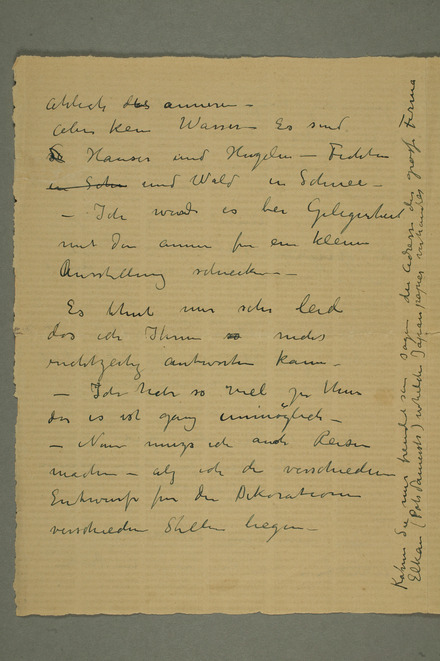 ählich des anneren –
aber kein Wasser – Es sind
Häuser und Hügeln – Fichten
und Wald in Schnee –
– Ich werde es bei Gelegenheit
mit den annern für eine kleine
Ausstellung schicken –
Es thut mir sehr leid
das ich Ihnen so nicht
rechtzeitig antworten kann –
– Ich habe so viel zu thun
das es ist ganz unmöglich –
– Nun muss ich auch Reisen
machen – als ich die verschieden
Entwürfe für die Dekorationen
verschieden Stellen liegen –
Können Sie mir freundlichst sagen die Adresse der grosse Firma
Elkan (Potsdamerstr)